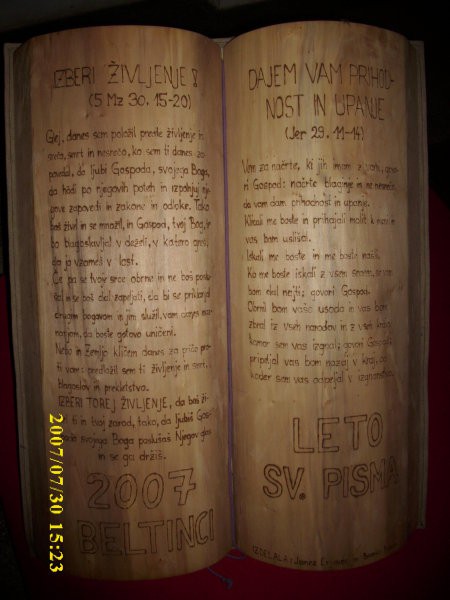 IZBERI ŽIVLJENJE!
(5 Mz 30, 15-20)
Glej, danes sem položil predte življenje in
srečo, smrt in nesrečo, ko sem ti danes za-
povedal, da ljubi Gospoda, svojega Boga,
da hodi po njegovih poteh in izpolnjuj nje-
gove zapovedi in zakone in odloke. Tako
boš živel in se množil, in Gospod, tvoj Bog, te
bo blagoslavljal v deželi, v katero greš,
da jo vzameš v last.
Če pa se tvoje srce obrne in ne boš poslu-
šal in se boš dal zapeljati, da bi se priklanjal
drugim bogovom in jim služil, vam danes naz-
nanjam, da boste gotovo uničeni.
Nebo in zemljo kličem danes za pričo pro-
ti vam: predložil sem ti življenje in smrt,
blagoslov in prekletstvo.
IZBERI TOREJ ŽIVLJENJE, da boš ži-
ti in tvoj zarod, tako, da ljubiš Gos-
poda svojega Boga poslušaš Njegov glas
in se ga držiš.
2007
BELTINCI
DAJEM VAM PRIHOD-
NOST IN UPANJE
(Jer 29, 11-14)
Vem za načrte, ki jih imam z vami, govo-
ri Gospod: načrte blaginje in ne nesreče,
da vam dam prihodnost in upanje.
Klicali me boste in prihajali molit k meni in
vas bom uslišal.
Iskali me boste in me boste našli.
Ko me boste iskali z vsem srcem, se vam
bom dal najti; govori Gospod.
Obrnil bom vašo usodo in vas bom
zbral iz vseh narodov in z vseh krajev,
kamor sem vas izgnal; govori Gospod;
pripeljal vas bom nazaj v kraj, od
koder sem vas odpeljal v izgnanstvo.
LETO
SV. PISMA
IZDELALA: in
2007/07/30 15:23